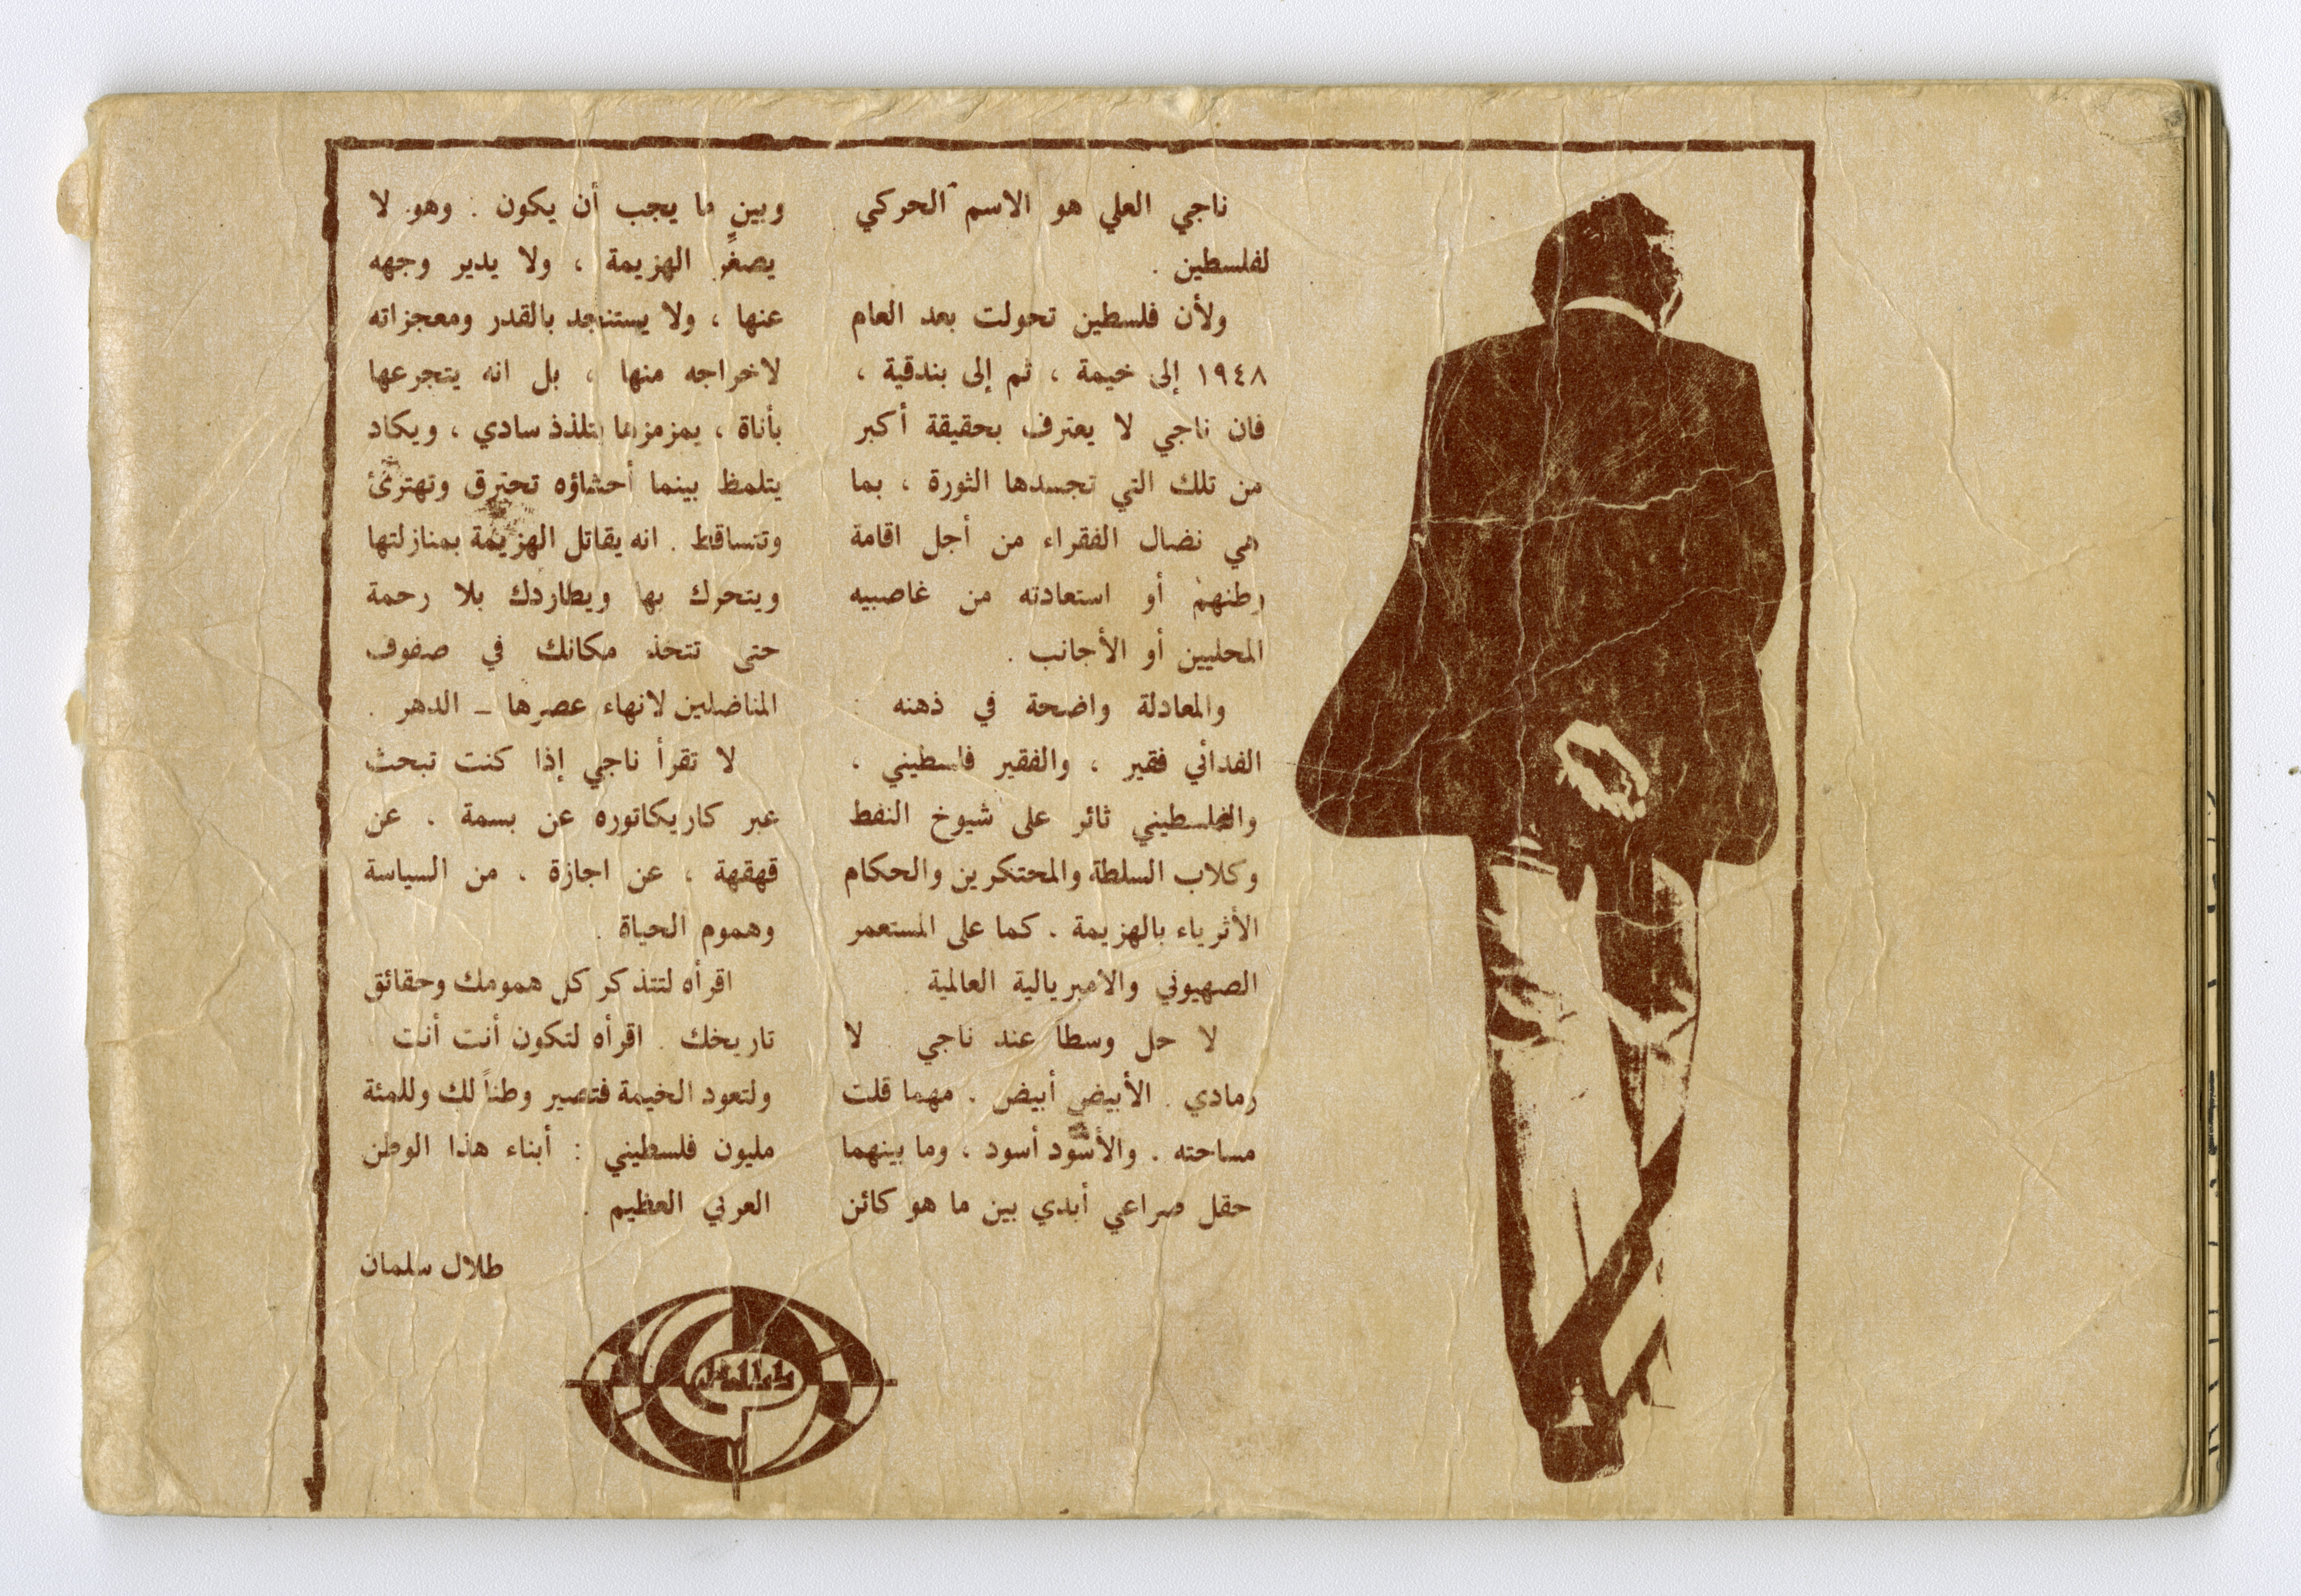 ناجي العلي هو الاسم الحركي
لفلسطين .
ولأن فلسطين تحولت بعد العام
١٩٤٨ إلى خيمة ، ثم إلى بندقية ،
فان ناجي لا يعترف بحقيقة أكبر
من تلك التي تجسدها الثورة ، بما
هي نضال الفقراء من أجل اقامة
وطنهم أو استعادته من غاصبيه
المحليين أو الأجانب .
والمعادلة واضحة في ذهنه :
الفدائي فقير ، والفقير فلسطيني ،
والفلسطيني ثائر على شيوخ النفط
وكلاب السلطة والمحتكرين والحكام
الأثرياء بالهزيمة . كما على المستعمر
الصهيوني والامبريالية العالمية .
لا حل وسطا عند ناجي . لا
رمادي . الأبيض أبيض . مهما قلت
مساحته . والأسود أسود ، وما بينهما
حقل صراعي أبدي بين ما هو كائن
وبين ما يجب أن يكون . وهو لا
يصغّر الهزيمة ، ولا يدير وجهه
عنها ، ولا يستنجد بالقدر ومعجزاته
لاخراجه منها ، بل انه يتجرعها
بأناة ، يمزمزها بتلذذ سادي ، ويكاد
يتلمظ بينما أحشاؤه تحترق وتهترئ
وتتساقط . انه يقاتل الهزيمة بمنازلتها
ويتحرك بها ويطاردك بلا رحمة
حتى تتخذ مكانك في صفوف
المناضلين لانهاء عصرها – الدهر .
لا تقرأ ناجي إذا كنت تبحث
عبر كاريكاتوره عن بسمة . عن
قهقهة ، عن اجازة . من السياسة
وهموم الحياة .
اقرأه لتتذكر كل همومك وحقائق
تاريخك . اقرأه لتكون أنت أنت
ولتعود الخيمة فتصير وطناً لك وللمئة
مليون فلسطيني : أبناء هذا الوطن
العربي العظيم .
طلال سلمان